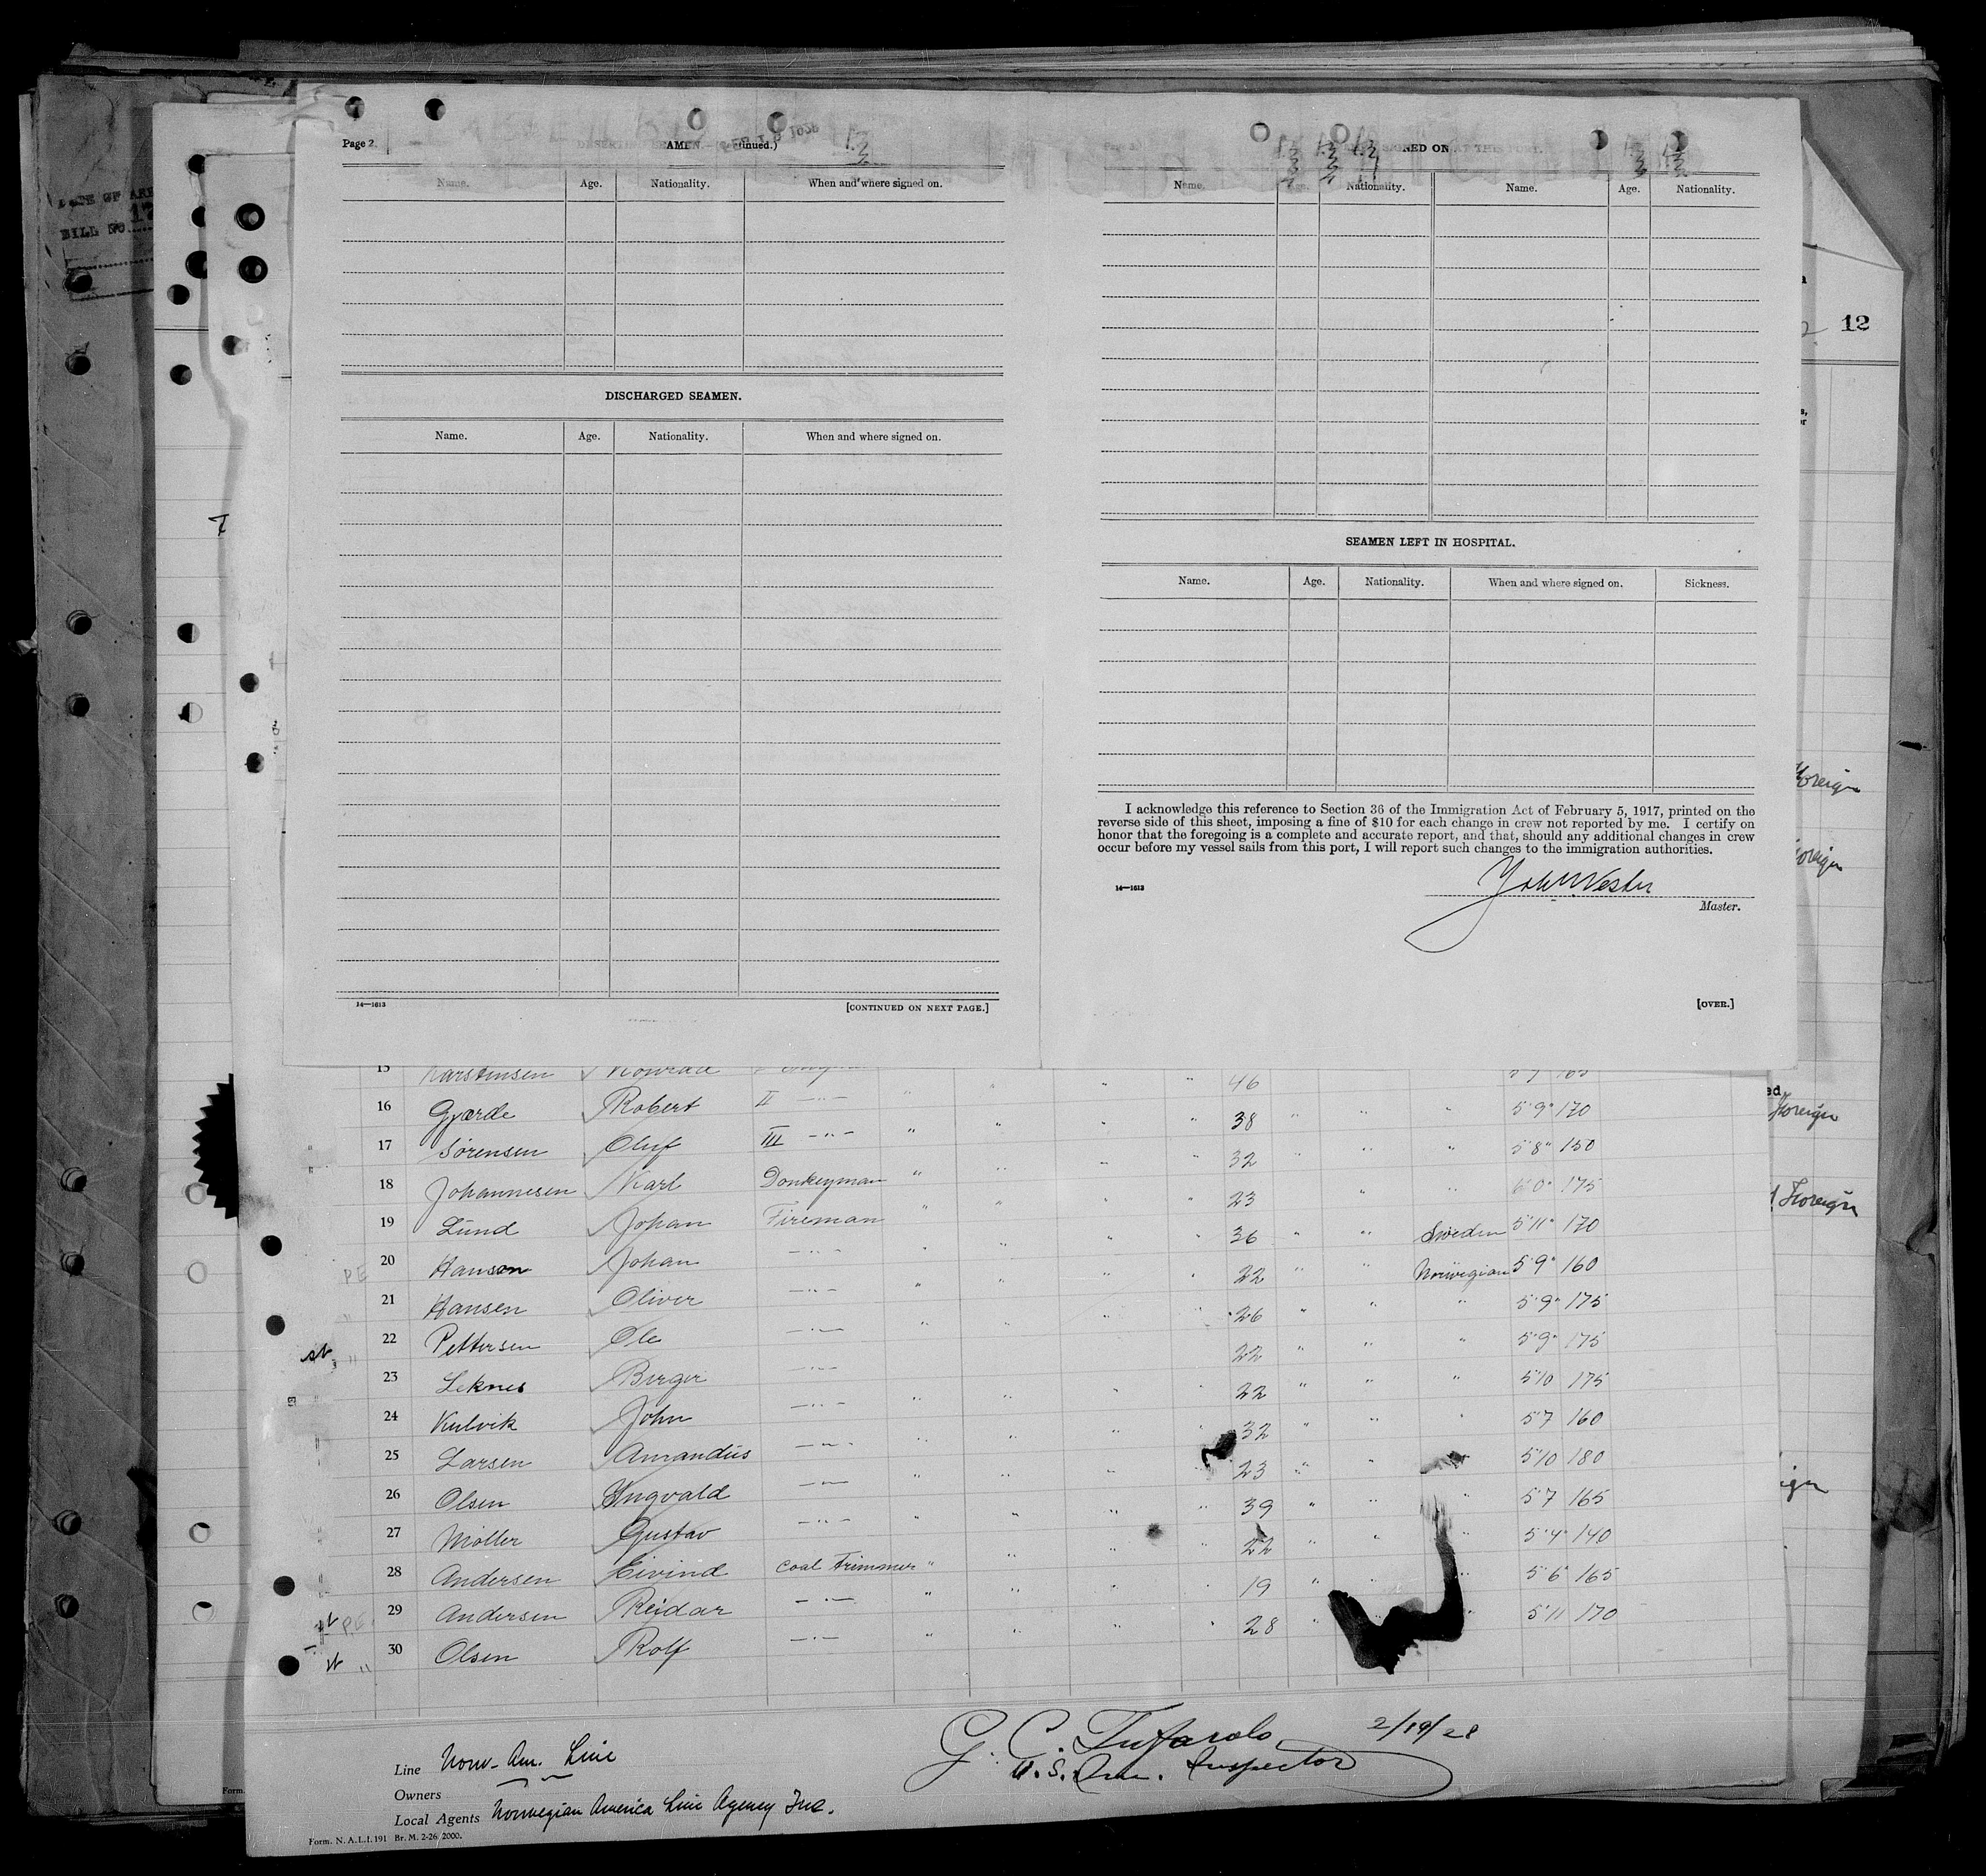 DATE OF
BILL NO. 17
Page 2.
Name. Age. Nationality. When and where signed on.
DISCHARGED SEAMEN.
Name. Age. Nationality. When and where signed on.
14—1613
[CONTINUED ON NEXT PAGE.]
Name. Age. Nationality. Name. Age. Nationality.
SEAMEN LEFT IN HOSPITAL.
Name. Age. Nationality. When and where signed on. Sickness.
I acknowledge this reference to Section 36 of the Immigration Act of February 5, 1917, printed on the
reverse side of this sheet, imposing a fine of $10 for each change in crew not reported by me. I certify on
honor that the foregoing is a complete and accurate report, and that, should any additional changes in crew
occur before my vessel sails from this port, I will report such changes to the immigration authorities.
14—1613
Master.
[OVER.]
12
Foreign
Foreign
Foreign
Foreign
15 Karstensen Konrad 46
16 Gjærde Robert II —"— " 38 " " " 5'9" 170
17 Sørensen Oluf III —"— " 32 " " " 5'8" 150
18 Johannesen Karl Donkeyman " 23 " " 6'0" 175
19 Lund Johan Fireman " 36 " " Sweden 5'11" 170
20 Hanson Johan —"— " 22 " " Norwegian 5'9" 160
21 Hansen Oliver —"— " 26 " " " 5'9" 175
22 Pettersen Ole —"— " 22 " " " 5'9" 175
23 Leknes Birger —"— 22 " " " 5'10 175
24 Kulvik John —"— " 32 " " " 5'7 160
25 Larsen Amandus —"— " 23 " " " 5'10 180
26 Olsen Ingvald —"— " 39 " " " 5'7 165
27 Møller Gustav —"— " 22 " " " 5'4" 140
28 Andersen Eivind Coal Trimmer " 19 " " 5'6" 165
29 Andersen Reidar —"— " 28 " " " 5'11 170
30 Olsen Rolf —"— "
Line Norw-Am. Line
Owners
Local Agents Norwegian America Line Agency Inc.
Form. N. A. L. I. 191 Br. M. 2-26 2000.
G. C. Tufarolo 2/19/28
U. S. Imm. Inspector